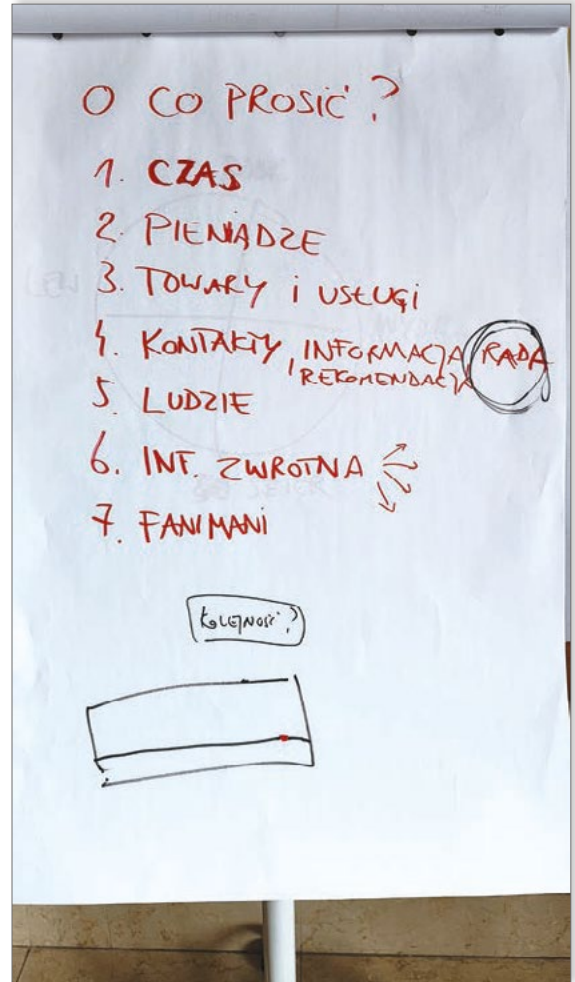 O CO PROSIĆ?
1. CZAS
2. PIENIĄDZE
3. TOWARY i USŁUGI
4. KONTAKTY, INFORMACJA, RADA
REKOMENDACJA
5. LUDZIE
6. INF. ZWROTNA
7. FANIMANI
KOLEJNOŚĆ?